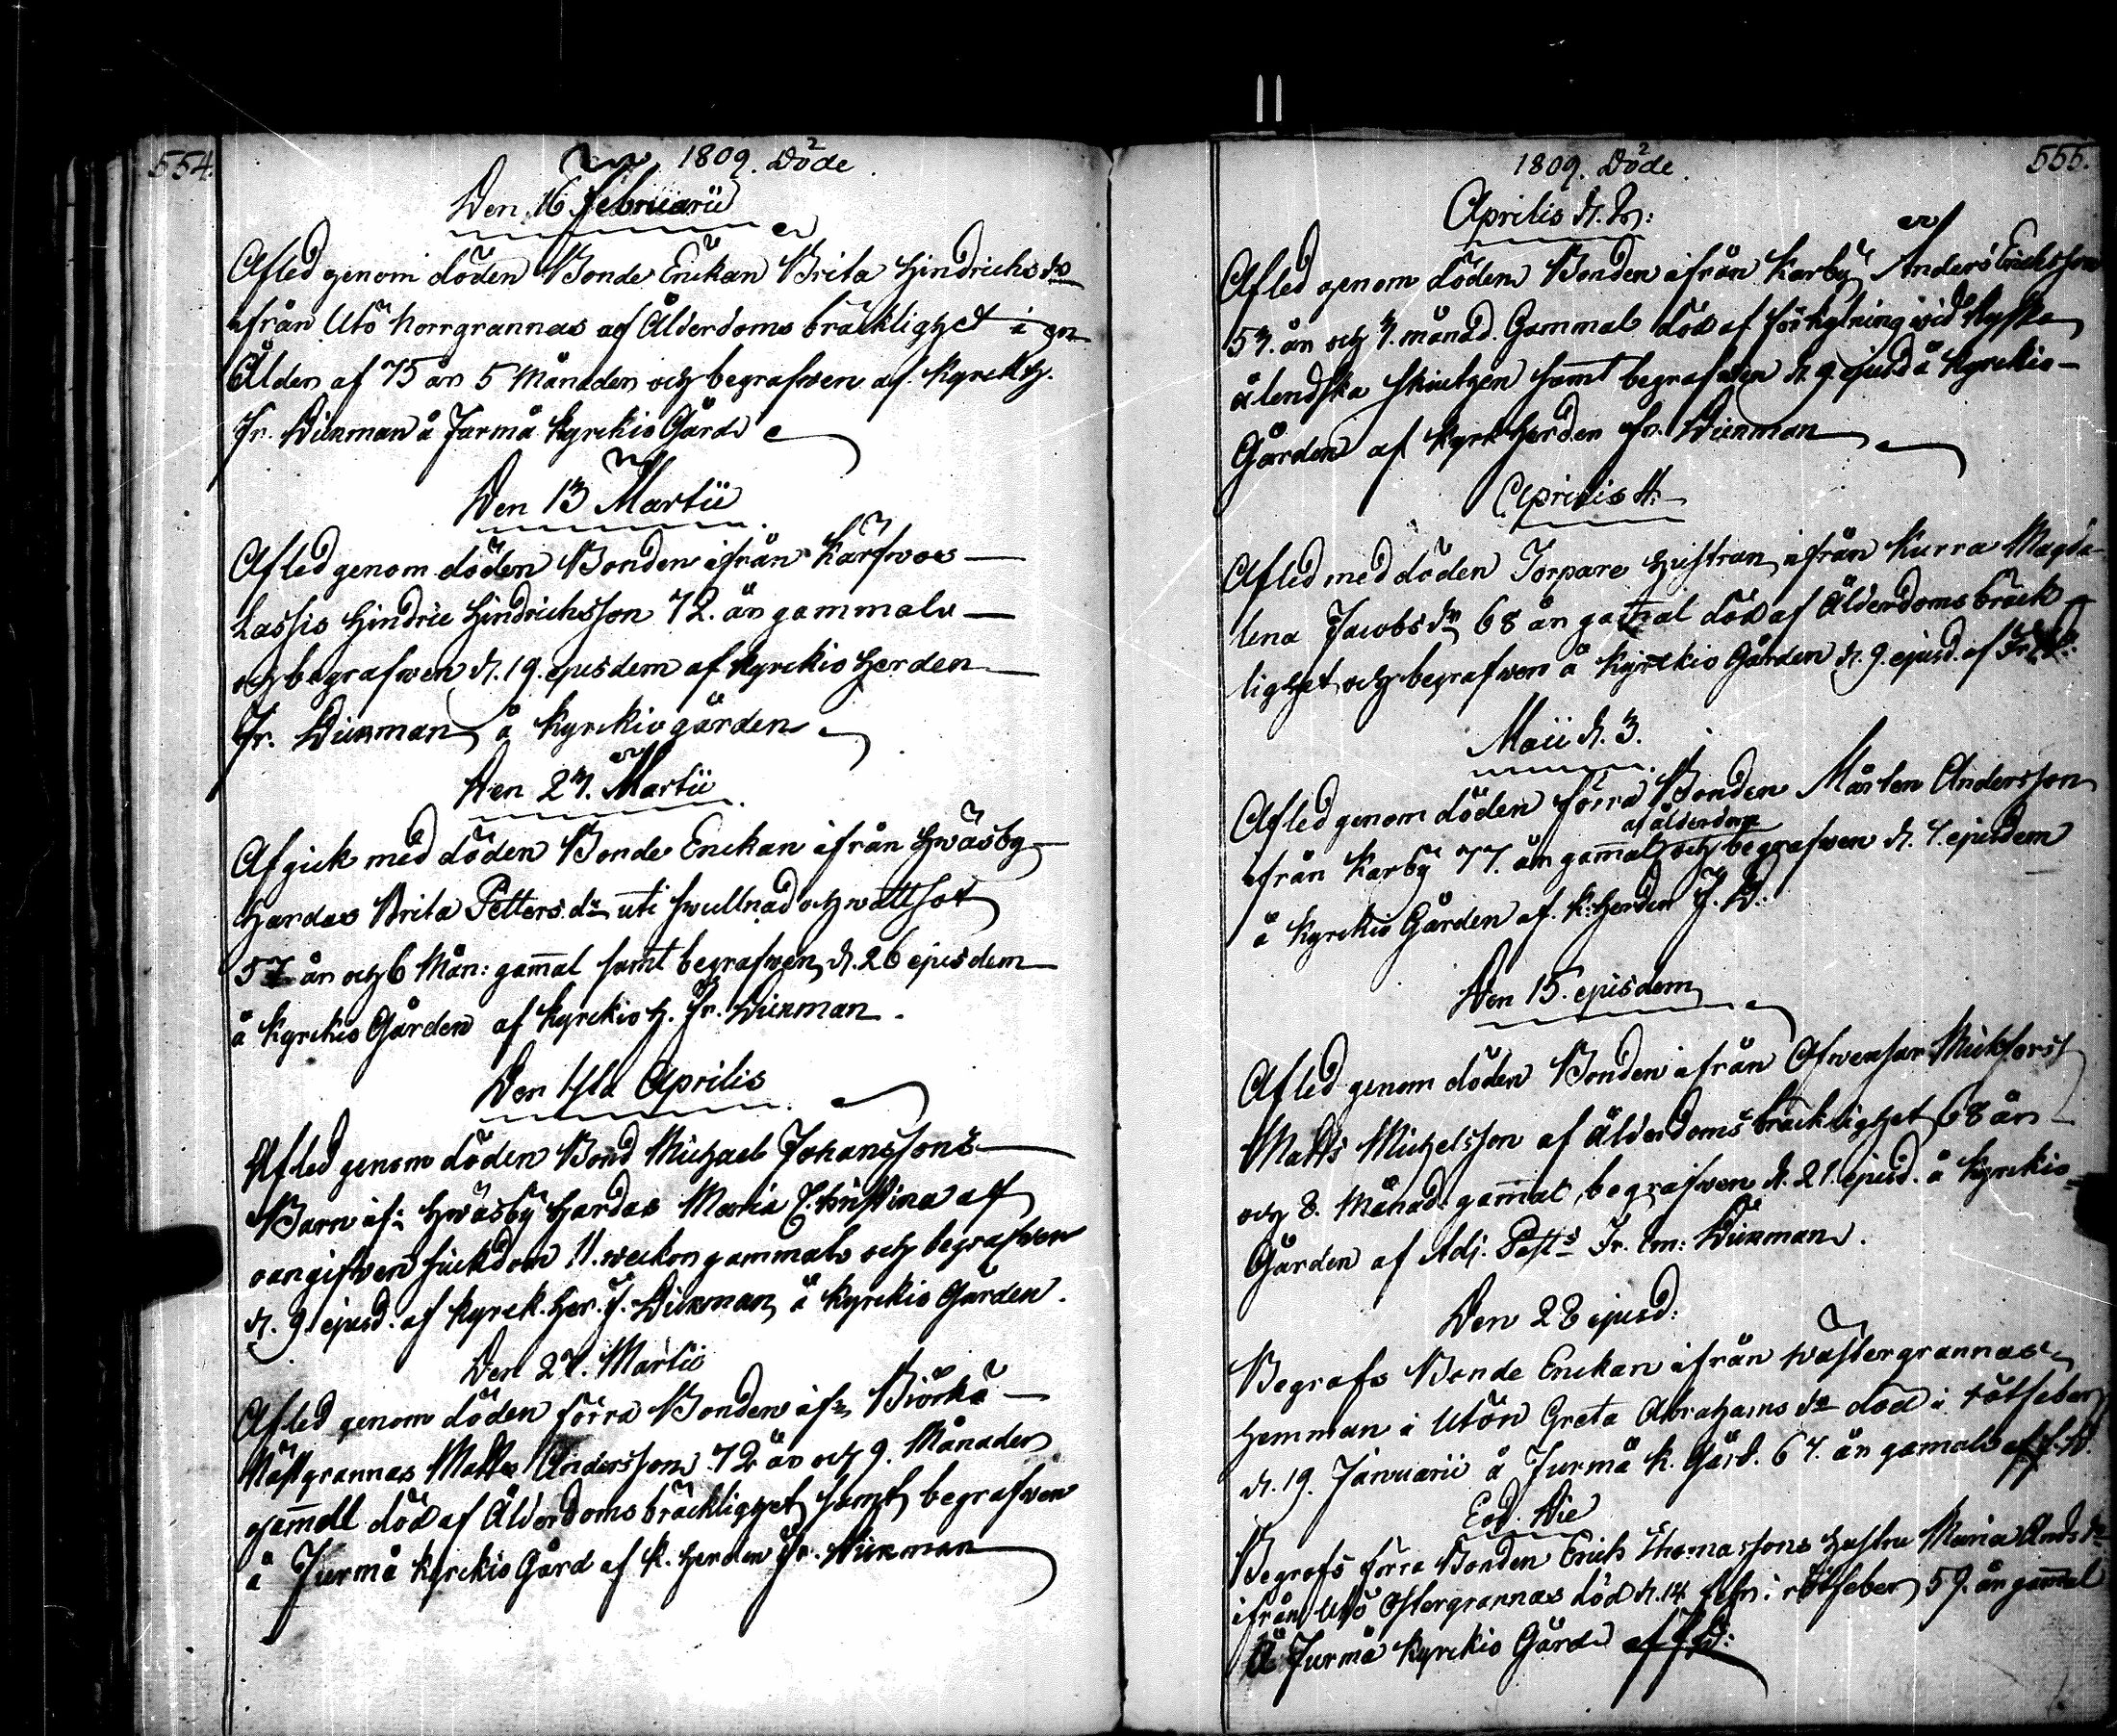 554.
1809. Döde.
Den 16 Februarii
Afled genom döden Bonde Enckan Brita Hindrichs dr
ifrån Utö Norrgrannas af Ålderdoms bräcklighet i
Ålder af 75 år 5 Månader och begrafwen af Kyrckh.
Fr. Wikman å Jurmå Kyrckio Gård
Den 13 Martii
Afled genom döden Bonden ifrån Kärfwoe
Lassis Hindric Hindrichsson 72. år gammal
och begrafwen d. 19. ejusdem af Kyrckio Herden
Fr. Wikman å Kyrckiogården
Den 23. Martii
Afgick med döden Bonde Enckan ifrån Hwäsby
Hardas Brita Petters dr uti swullnad och wattsot
57 år och 6 Mån: gam̄al samt begrafwen d. 26 ejusdem
å Kyrckio Gården af Kyrckio H. Fr. Wikman.
Den 4 Aprilis
Afled genom döden Bond Michael Johanssons
Barn if: Hwäsby Hardas Maria Christina af
oangifwen siuckdom 11. weckor gammal och begrafwen
d. 9 ejusd. af Kyrck. Her. F. Wikman å Kyrckio Gården.
Den 27. Martii
Afled genom döden förra Bonden ifr Biörkö
Nästgrannas Matts Andersson 72 år och 9. Månader
gam̄all död af Ålderdoms bräcklighet samt begrafwen
å Jurmå Kyrckio Gård af K. Herden Fr. Wikman
555.
1809. Döde.
Aprilis d. 3:
Afled genom döden Bonden ifrån Karby Anders Ericksson
53. år och månad. Gammal död af förkylning wid
ålendska skiutzen samt begrafwen d. 9. ejusd å Kyrckio-
Gården af Kyrk Herden Fr. Wikman
Aprilis 4.
Afled med döden Torpare Hustrun ifrån Kurra Magda-
lena Jacobs dr 68 år gam̄al död af Ålderdoms bräck
lighet och begrafwen å Kyrckio Gården d. 9. ejusd. af Fr. W.
Maii d. 3.
Afled genom döden förra Bonden Mårten Andersson
af ålderdom
ifrån Karby 77. år gam̄al och begrafwen d. 7. ejusdem
å Kyrckio Gården af K. Herden F. W.
Den 15. ejusdem
Afled genom döden Bonden ifrån Ofwensor
Matts Michelsson af Ålderdoms bräcklighet 68 år
och 8. Månad: gam̄al, begrafwen d. 21. ejusd. å Kyrckio-
Gården af Adj. Past:s Fr. Em: Wikman.
Den 28 ejusd:
Begrofs Bonde Enckan ifrån Wästergrannas
Hemman i Utön Greta Abrahams dr död i rötfeber
d. 19. Januarii å Jurmå K. Gård. 67. år gamal af F. W.
Eod. Die
Begrofs förra Bonden Erich Thomassons Hustru Maria Ands dr
ifrån Utö Östergrannas död d. 14 Febr. i rötfeber 59. år gam̄al
Å Jurmå Kyrckio Gård af F. W: